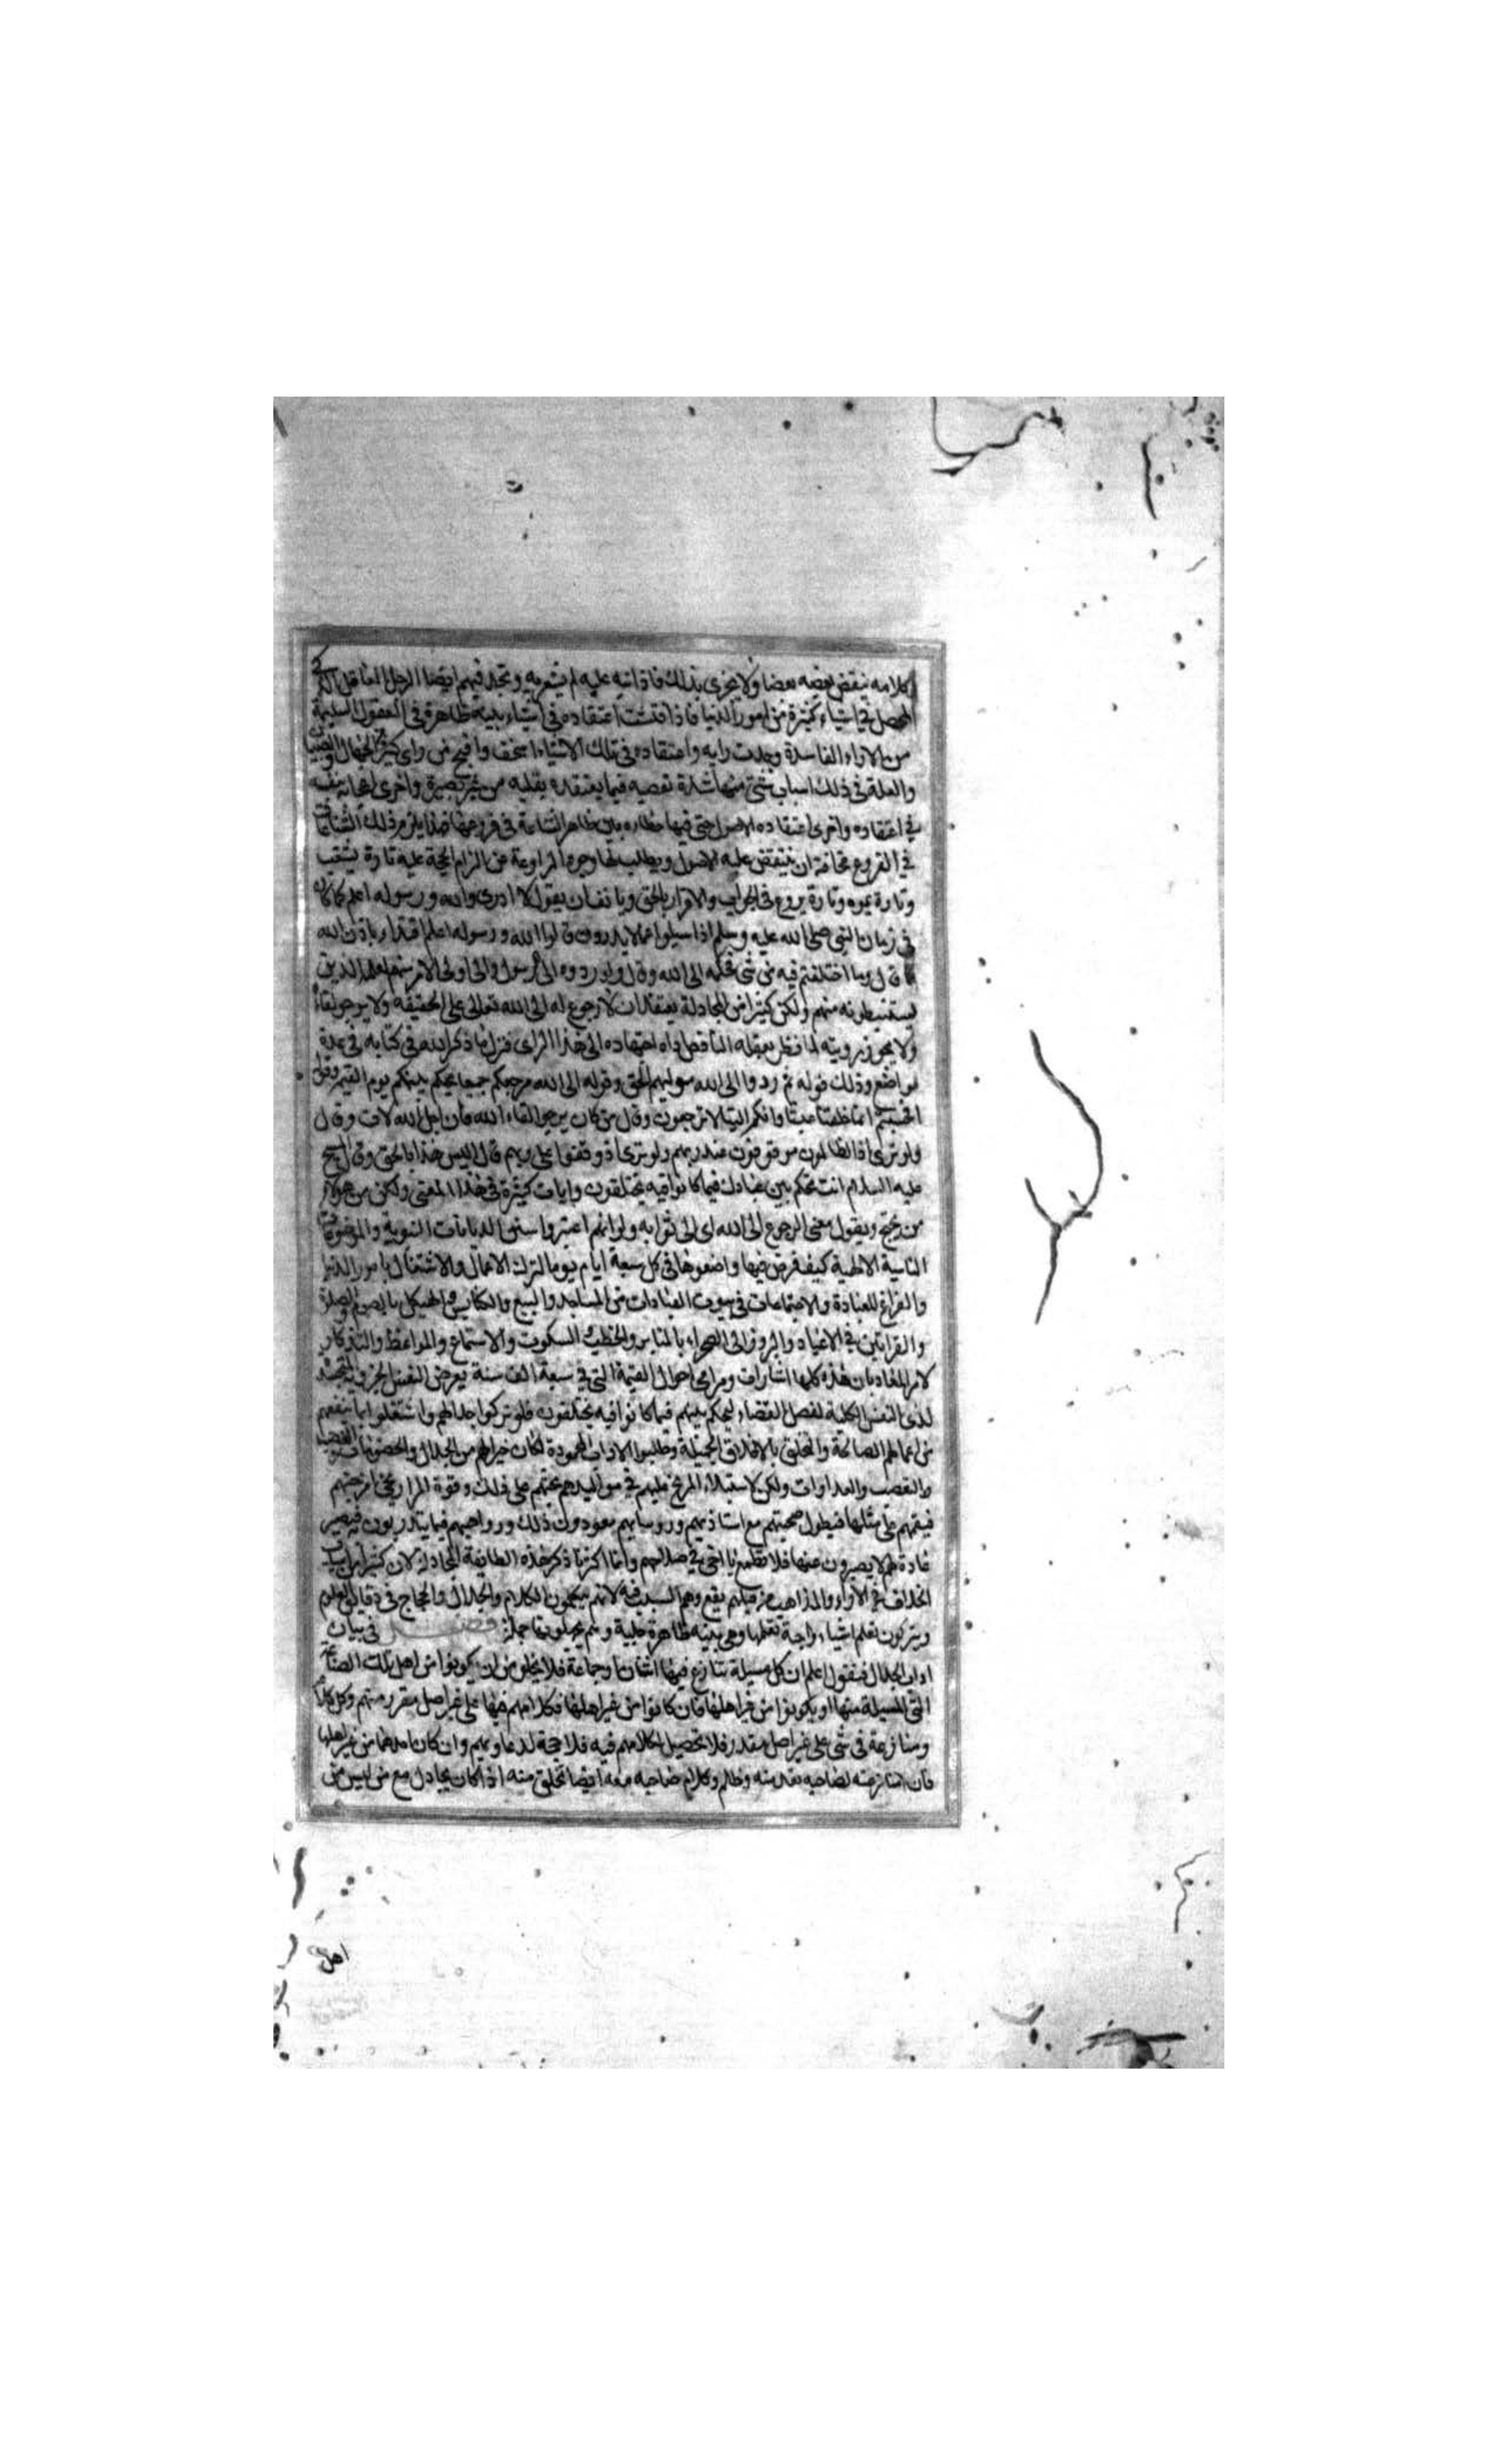 كلامه ينقض بعضه بعضا ولا يدرى بذلك فاذا نبه عليه لم يشعر به وتجد فيهم ايضا الرجل العاقل الذكى
المحصل فى اشياء كثيرة من امور الدنيا فاذا فتشت اعتقاده فى اشياء بينه ظاهرة فى العقول السليمة
من الاراء الفاسدة وجدت رايه واعتقاده فى تلك الاشياء اسخف واقبح من راى كثير من الجهال والصبيان
والعلة فى ذلك اسباب شتى منها شدة تعصبه فيما يعتقده بقلبه من غير بصيرة واخرى اعجابه بنفسه
فى اعتقاده واخرى اعتقاده الاصول فيها ظاهر الشناعة فى فروعها يلزم ذلك الشناعات
فى الفروع مخافة ان ينتقض عليه الاصول ويطلب لها وجوه المراوغة من الزام الحجة عليه تارة يشغب
وتارة يموه وتارة يروغ فى الجواب والاقرار بالحق ويانف ان يقول لا ادرى والله ورسوله اعلم كما كان
فى زمان النبى صلى الله عليه وسلم اذا سيلوا عما لا يدرون قالوا الله ورسوله اعلم اقتداء باذن الله
قال وما اختلفتم فيه من شى فحكمه الى الله وقال ولو ردوه الى الرسول والى اولى الامر منهم لعلمه الذين
يستنبطونه منهم ولكن كثيرا من المجادلة يعتقد ان لا رجوع له الى الله تعالى على الحقيقه ولا يرجو لقاءه
ولا يجوز رويته لما نظر بعقله الناقص اداه اجتهاده الى هذا الراى فترك ما ذكر الله فى كتابه فى عدة
مواضع وذلك قوله ثم ردوا الى الله موليهم الحق وقوله الى الله مرجعكم جميعا يحكم بينكم يوم القيمة وقال
افحسبتم انما خلقناكم عبثا وانكم الينا لا ترجعون وقال من كان يرجو لقاء الله فان اجل الله لات وقال
ولو ترى اذ الظالمون موقوفون عند ربهم ولو ترى اذ وقفوا على ربهم قال اليس هذا بالحق وقال المسيح
عليه السلام انت تحكم بين عبادك فيما كانوا فيه يختلفون وايات كثيرة فى هذا المعنى ولكن من هولاء
من يحتج ويقول معنى الرجوع الى الله اى الى ثوابه ولو انهم اعتبروا سنن الديانات النبوية والموضوعات
الناسية الالهية كيف فرض فيها واضعوها فى كل سبعة ايام يوما لترك الاعمال والاشتغال بامور الدنيا
والفراغ للعبادة والاجتماعات فى بيوت العبادات من المساجد والبيع والكنايس والهيكل بالصوم والصلوة
والقرابين فى الاعياد والبروز الى الصحراء بالمنابر والخطب والسكوت والاستماع والمواعظ والتذكار
لامر المعاد بان هذه كلها اشارات ومرامى احوال القيمة التى فى سبعة الف سنة يعرض النفس الجزوية المتجسدة
لدى النفس الكلية لفصل القضاء ليحكم بينهم فيما كانوا فيه يختلفون فلو تركوا جدالهم واشتغلوا بما ينفعهم
من اعمالهم الصالحة والتخلق بالاخلاق الجميلة وطلبوا الاداب المحمودة لكان خيرا لهم من الجدال والخصومات
والتعصب والعداوات ولكن لاستيلاء المريخ عليهم فى مواليدهم يحثهم على ذلك وقوة المرار يحرق امزجتهم
فيقيهم على مثلها فيطول صحبتهم مع استاذيهم وروسايهم يعودون ذلك ورواحهم فيما يتدربون فيصير
عادة لهم لا يصبرون عنها فلا تطمع يا اخى فى صلاحهم وانما اكثرنا ذكر هذه الطايفة المجادلة لان كثيرا من اسباب
الخلاف فى الاراء والمذاهب من قبلهم يقع وهم السبب فيه لانهم يحكمون الكلام والجدال والحجاج فى دقايق العلوم
ويتركون تعلم اشياء واجبة تعلمها وهى بينه ظاهرة جلية وهم يجهلونها جملة فصل فى بيان
اداب الجدال فنقول اعلم ان كل مسيلة تنازع فيها اثنان او جماعة فلا يخلو من ان يكونوا من اهل تلك الصناعة
التى المسيلة منها او يكونوا من غير اهلها فان كانوا من غير اهلها فكلامهم فيها على غير اصل مقرر منهم وكل كلام
ومنازعة فى شى على غير اصل مقدر فلا تحصيل لكلامهم فيه فلا حجة لدعاويهم وان كان احدهما من غير اهلها
فان منازعته لصاحبه تعد منه وظلم وكلام صاحبه معه ايضا تخلق منه اذا كان يجادل مع من ليس من
اهل